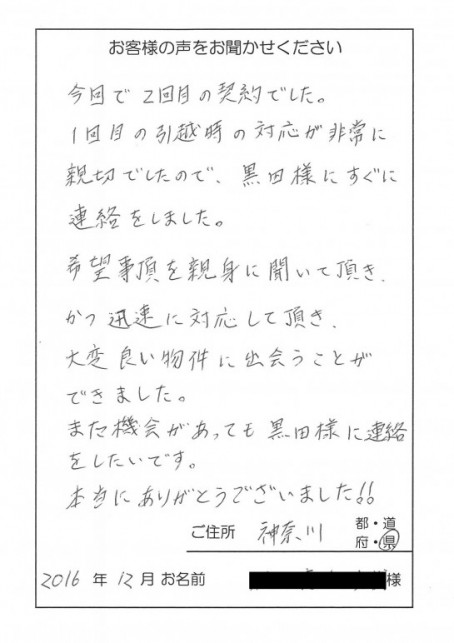 お客様の声をお聞かせください
今回で2回目の契約でした。
1回目の引越時の対応が非常に
親切でしたので、黒田様にすぐに
連絡をしました。
希望事項を親身に聞いて頂き、
かつ迅速に対応して頂き、
大変良い物件に出会うことが
できました。
また機会があっても黒田様に連絡
をしたいです。
本当にありがとうございました!!
ご住所 神奈川 都・道
府・県
2016年12月お名前 様